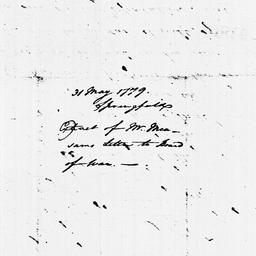 31 May 1779.
Springfield
Extract of Mr. Mea-
sams Letter to Board
of War. —